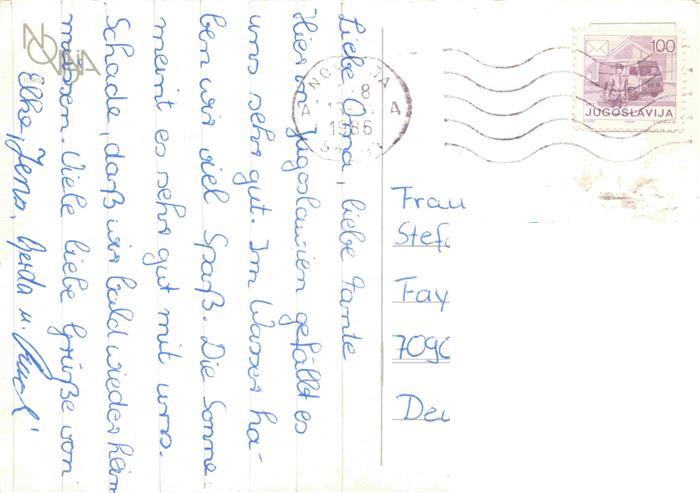 Liebe Oma, liebe Tante
Hier in Jugoslawien gefällt es
uns sehr gut. Im Wasser ha-
ben wir viel Spaß. Die Sonne
meint es sehr gut mit uns.
Schade, daß wir bald wieder heim
müssen. Viele liebe Grüße von
Elke, Jens, Gerda u.
NOVALJA
1986
A A
100
JUGOSLAVIJA
Frau
Stef
Fay
7090